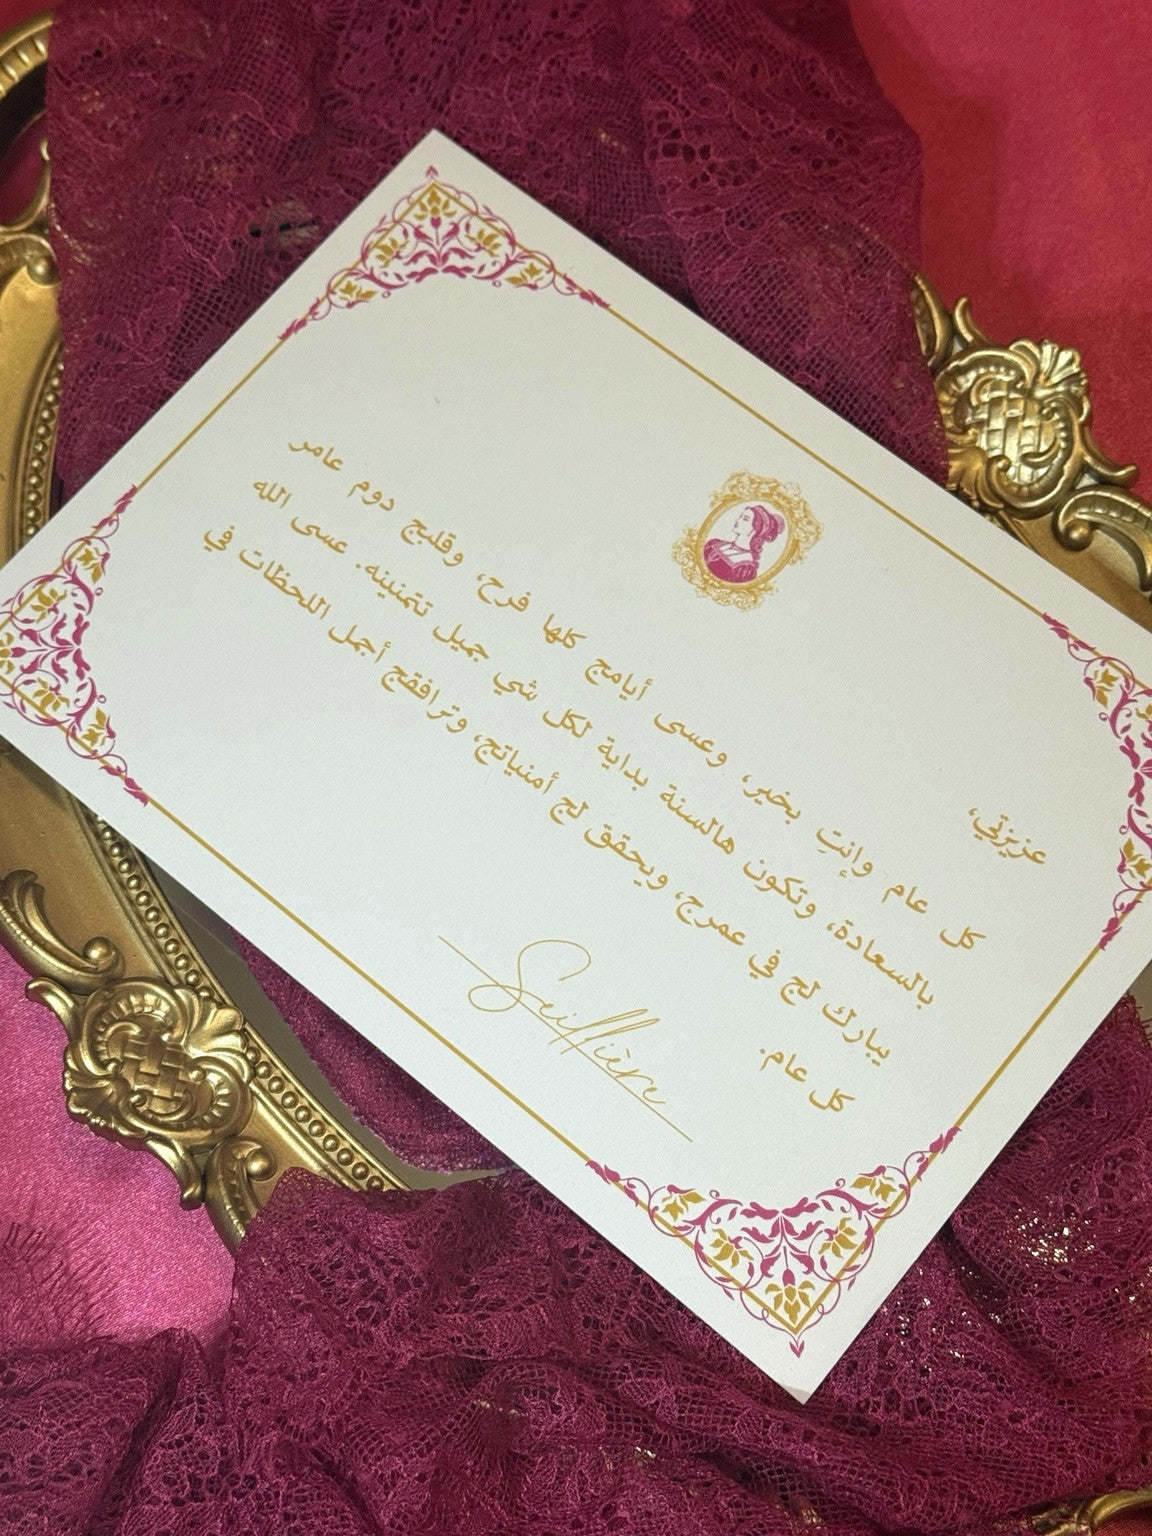 عزيزتي،
كل عام وإنتِ بخير، وعسى أيامج كلها فرح، وقلبج دوم عامر
بالسعادة، وتكون هالسنة بداية لكل شي جميل تتمنينه. عسى الله
يبارك لج في عمرج، ويحقق لج أمنياتج، وترافقج أجمل اللحظات في
كل عام.
Seillière